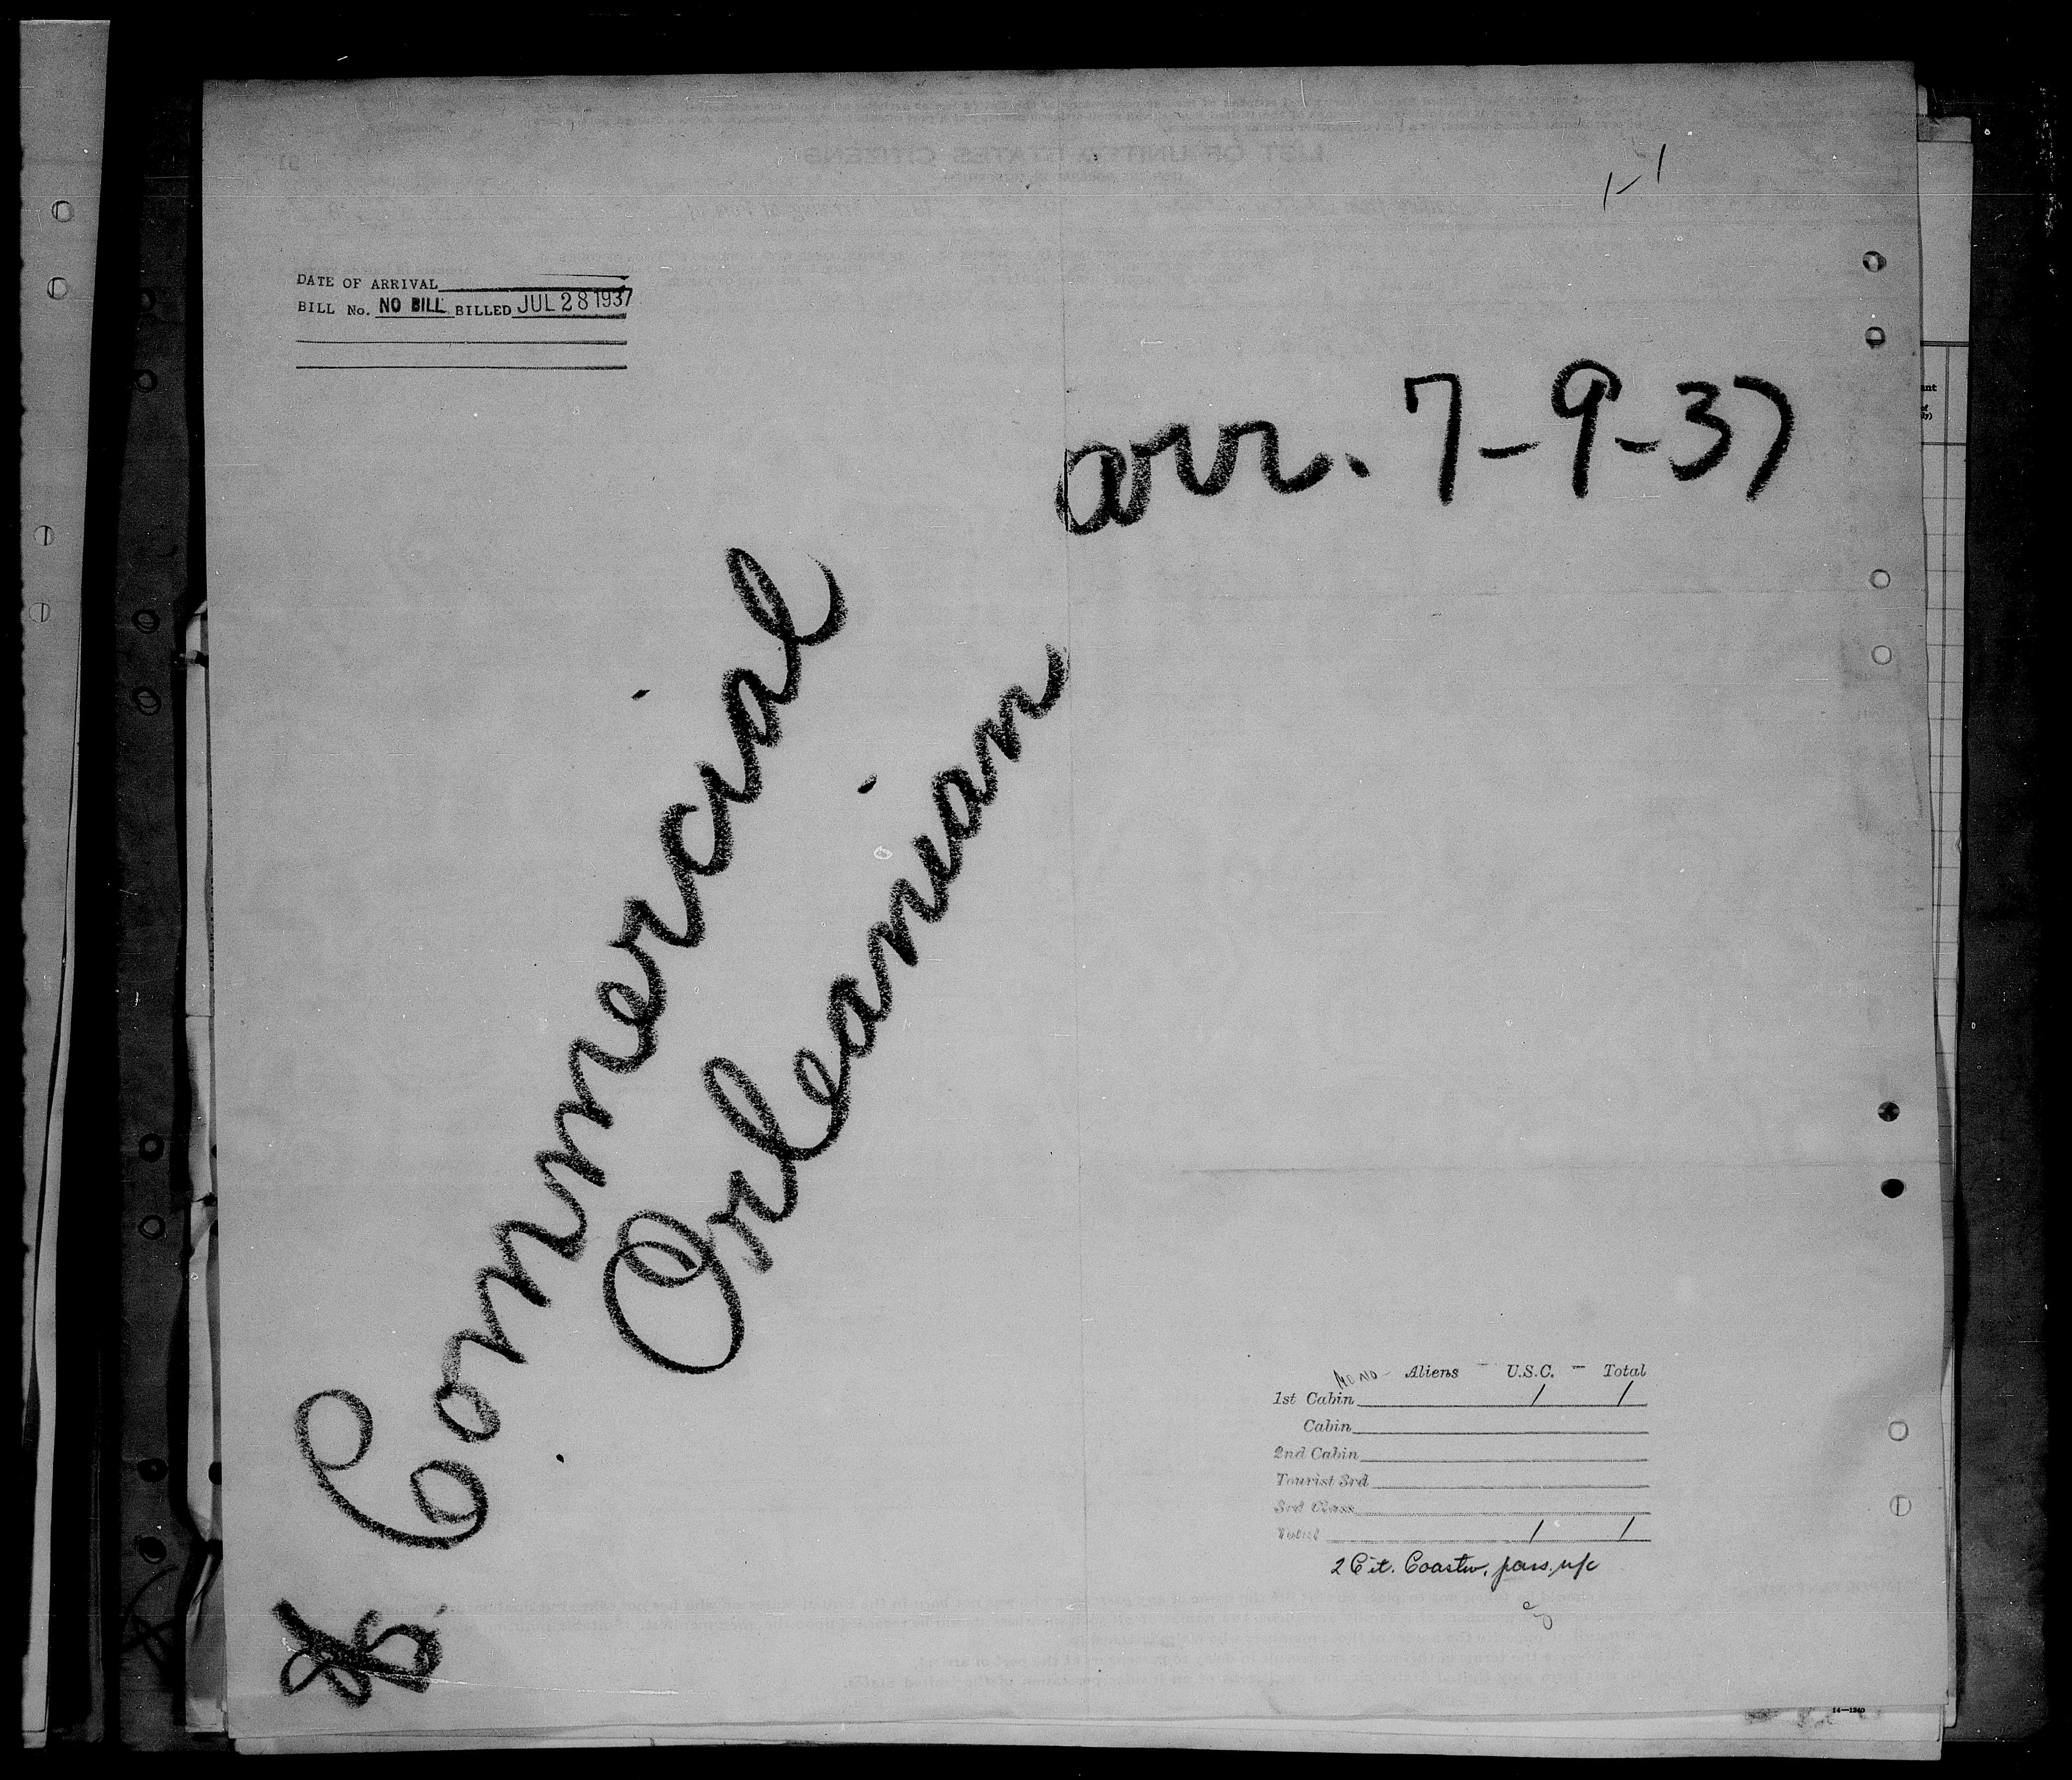 1-1
DATE OF ARRIVAL
BILL No. NO BILL BILLED JUL 28 1937
arr. 7-9-37
Commercial
Orleanian
Aliens - U.S.C. - Total
1st Cabin 1 1
Cabin
2nd Cabin
Tourist 3rd
3rd Class
Total 1 1
2 Cit. Coastw. pass. n/c
14-1240